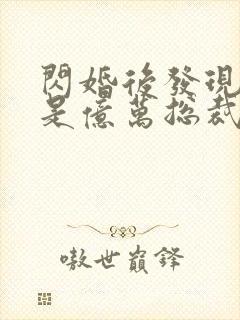 閃婚後發現
是億萬總裁
嗷世巔鋒